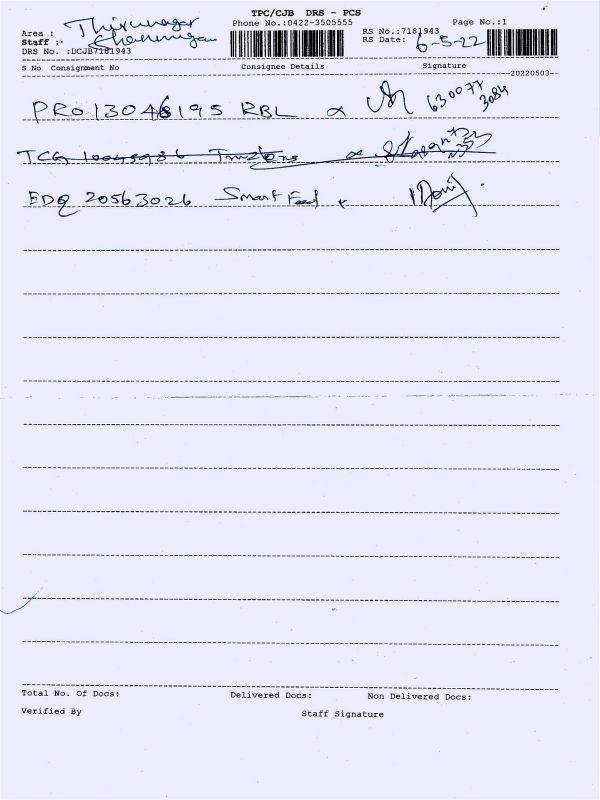 TPC/CJB DRS - PCS
Phone No.:0422-3505555 Page No.:1
Area : Thirunagar
Staff :- Shanmugam
DRS No. :DCJB7181943
RS No.:7181943
RS Date: 6-5-22
S No Consignment No Consignee Details Signature
--20220503--
PRO13046195 RBL 630077
3084
TCG
EDQ 20563026 Smart Feed
Total No. Of Docs: Delivered Docs: Non Delivered Docs:
Verified By Staff Signature